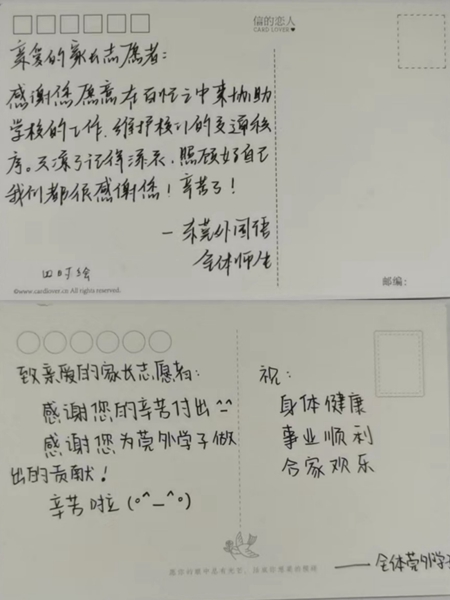 信的恋人
CARD LOVER♥
亲爱的家长志愿者:
感谢您愿意在百忙之中来协助
学校的工作、维护校门的交通秩
序。天凉了记得添衣、照顾好自己
我们都很感谢您!辛苦了!
—东莞外国语
全体师生
四时绘
©www.cardlover.cn All rights reserved.
邮编:
致亲爱的家长志愿者:
感谢您的辛苦付出^-^
感谢您为莞外学子做
出的贡献!
辛苦啦(o^_^o)
祝:
身体健康
事业顺利
合家欢乐
——全体莞外学子